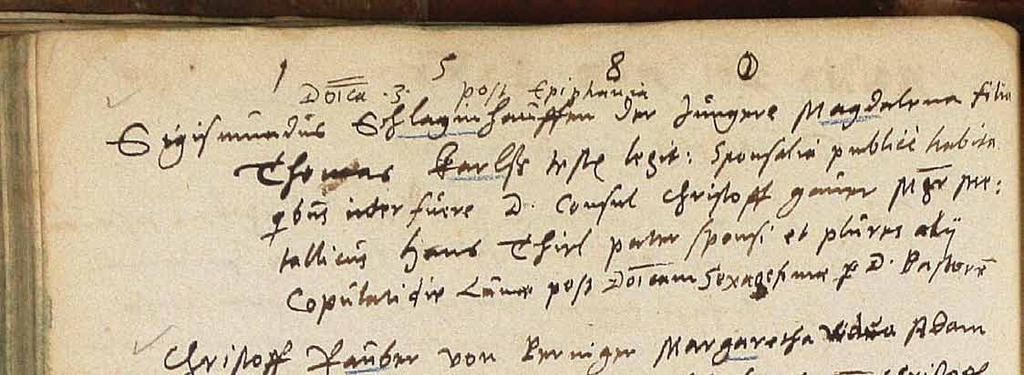 1 5 8 0
Do͞ica . 3. post Epiphania
Sigismundus Schlaginhauffen der Jungere Magdalena filia
Thomas Karlss testes legit: sponsalia publice habita
qbus interfuere D. Consul Christoff Mgr̄ me:
tallicus Hans Thirl pater sponsi et plures alij
Copulati die Lunæ post Do͞icam Sexagesimæ p D. Pastorē
Christoff Rauber von Berniger Margaretha vidua Adam